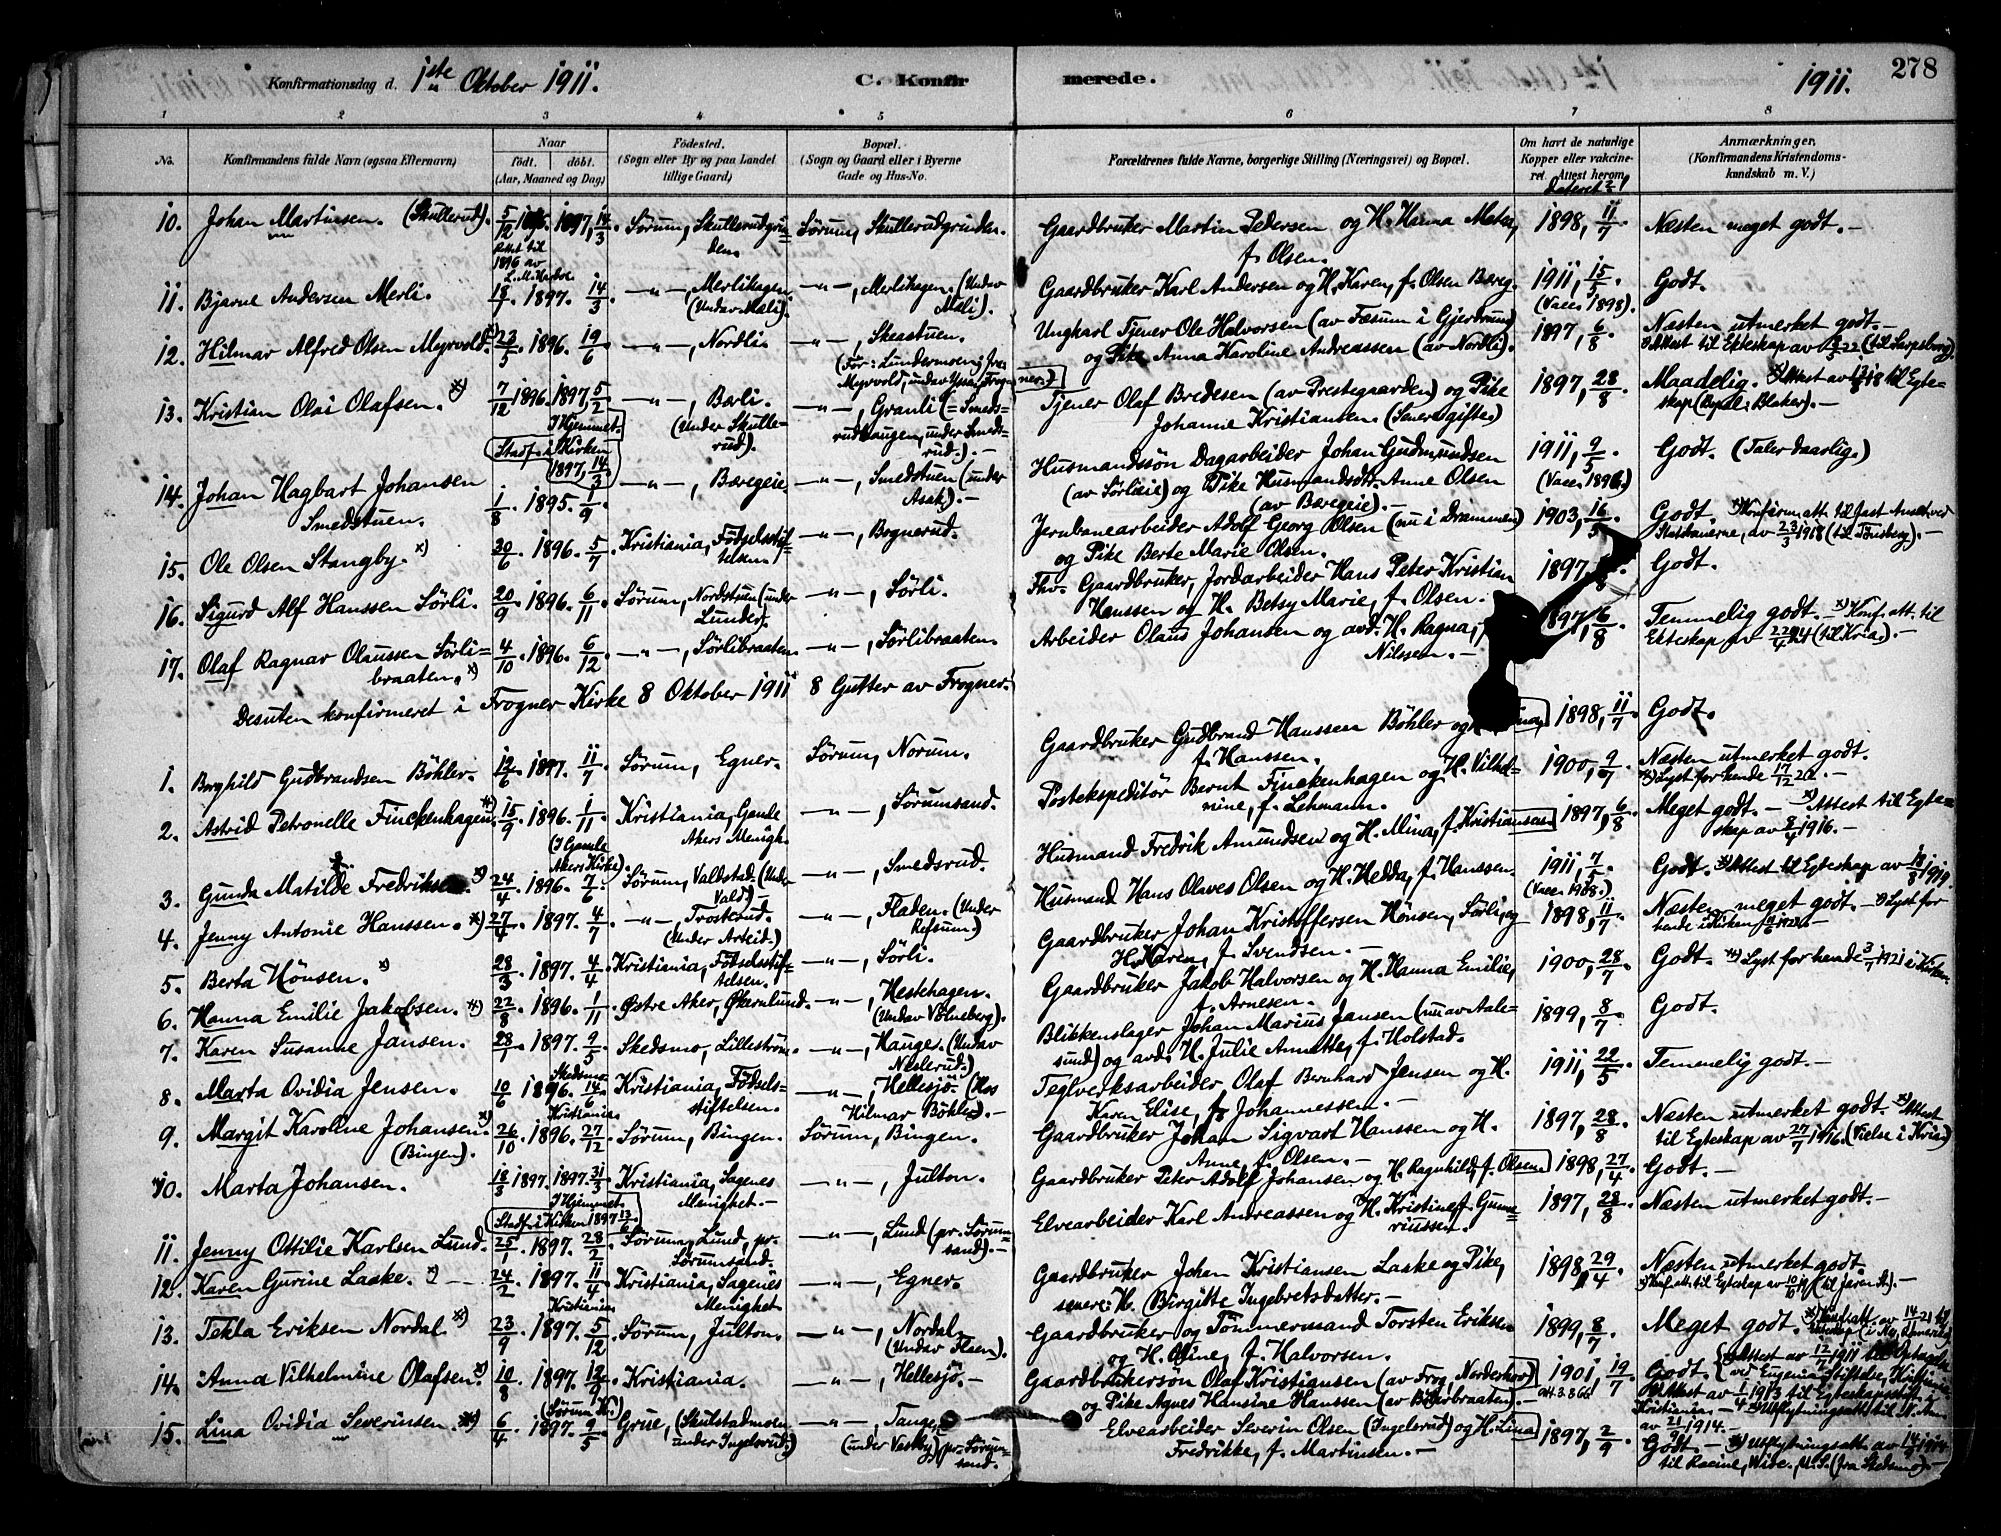 Konfirmationsdag d. 1ste Oktober 1911. C. Konfirmerede. 1911. 278
1 2 3 4 5 6 7 8
No. Konfirmandens fulde Navn (ogsaa Efternavn) Naar født, døbt. (Aar, Maaned og Dag) Fødested. (Sogn eller By og paa Landet tillige Gaard) Bopæl. (Sogn og Gaard eller i Byerne Gade og Hus-No. Forældrenes fulde Navne, borgerlige Stilling (Næringsvei) og Bopæl. Om havt de naturlige Kopper eller vakcineret. Attest herom, dateret Anmærkninger, (Konfirmandens Kristendomskundskab m. V.)
10. Johan Martinsen. (Skullerud). 5/12 1896 1897, 14/3 Sørum, Skullerudgrinden. Sørum, Skullerudgrinden. Gaardbruker Martin Pedersen og H. Hanna Matea, f. Olsen. 1898, 11/7. Næsten meget godt. —
Rettet til 1896 av
11. Bjarne Andersen Merli. 18/7. 1897. 14/3 —"—, Merlihagen (Under Mæli). —"—, Merlihagen (Under Mæli). Gaardbruker Karl Andersen og H. Karen, f. Olsen Bæreg. 1911, 15/5 (Vacc. 1898). Godt.
12. Hilmar Alfred Olsen Myrvold. 23/5 1896. 19/6 —"—, Nordli. —"—, Skesstuen. Ungkarl Tjener Ole Halvorsen (av Fæsum i Gjerdrum) og Pike Anna Karoline Andreassen (av Nordli). 1897, 6/8 Næsten utmerket godt. —
Attest til Ekteskap av (til Sarpsborg).
13. Kristian Olai Olafsen. *) 7/12 1896. 1897, 5/2 I Hjemmet. Stadf. i Kirken 1897, 14/3 —"—, Bærli. (Under Skullerud). —"—, Granli (= Smedsrudhaugen, under Smedsrud.). — Tjener Olaf Bredesen (av Prestegaarden) og Pike Johanne Kristiansen (Senere gifte.) 1897, 28/8 Maadelig. *) Attest av til Egteskap (Bopæl: Blaker). —
14. Johan Hagbart Johansen Smedstuen. 1/8. 1895. 1/9 —"—, Bæregeie. —"—, Smedstuen (under Asak). — Husmandssøn Dagarbeider Johan Gudmundsen (av Sørlieie) og Pike Husmandsdtr. Anne Olsen (av Bæregeie). — 1911, 9/5 (Vacc. 1896.) Godt. (Taler daarlig.)
15. Ole Olsen Stangby. *) 30/6 1896. 5/7 Kristiania, Fødselsstiftelsen. —"—, Bognerud. Jernbanearbeider Adolf Georg Olsen (nu i Drammen) og Pike Berte Marie Olsen. 1903, 16/5 Godt. *) Konfirm. att. til fast Ansett. ved Statsbanerne, av 2/3 1918 (til Tønsberg). —
16. Sigurd Alf Hanssen Sørli. 20/9 1896. 6/11 Sørum, Nordstun (under Lunder). —"—, Sørli. Fhv. Gaardbruker, Jordarbeider Hans Peter Kristian Hanssen og H. Betsy Marie, f. Olsen. 1897, Godt.
17. Olaf Ragnar Olaussen Sørlibraaten. *) 4/10 1896. 6/12 —"—, Sørlibraaten. —"—, Sørlibraaten. Arbeider Olaus Johansen og avd. H. Ragna, f. Nilssen. — 1897, 6/8 Temmelig godt. *) Konf. att. til Ekteskap av 22/4 24 (til Kria). —
Desuten konfirmeret i Frogner Kirke 8 Oktober 1911 8 Gutter av Frogner.
1. Borghild Gudbrandsen Böhler. 12/6 1897. 11/7 Sørum, Egner. Sørum, Norum. Gaardbruker Gudbrand Hanssen Böhler og f. Hanssen. 1898, 11/7 Godt.
2. Astrid Petronelle Finckenhagen. *) 15/9 1896. 1/11 (I Gamle Akers Kirke). Kristiania, Gamle Akers Menigh. —"—, Sørumsand. Postekspeditör Bernt Finckenhagen og H. Vilhelmine, f. Lehmann. 1900, 9/7 Næsten utmerket godt.
*) Lyst for hende 17/12 22. —
3. Gunda Matilde Fredriksen. *) 24/4 1896. 7/6 Sørum, Valdstad. (Under Vald). —"—, Smedsrud. Husmand Fredrik Amundsen og H. Mina, f. Kristiansen 1897, 6/8 Meget godt. — *) Attest til Egteskap av 1916. —
4. Jenny Antonie Hanssen. *) 27/4 1897. 4/7 —"—, Trosterud. (Under Arteid.) —"—, Fladen. (Under Refsum.) Husmand Hans Olaves Olsen og H. Hedda, f. Hanssen. 1911, 7/5 (Vacc. 1908.) Godt. *) Attest til Egteskap av 18/8 1919.
5. Berta Hönsen. *) 28/3 1897. 4/4 Kristiania, Fødselsstiftelsen. —"—, Sørli. Gaardbruker Johan Kristoffersen Hönsen, Sørli, og H. Karen, f. Svendsen. — 1898, 11/7 Næsten meget godt. — *) Lyst for hende i Kirken
6. Hanna Emilie Jakobsen. *) 22/8 1896. 1/11 Østre Aker, Økernlund. —"—, Hestehagen. (Under Vølneberg). Gaardbruker Jakob Halvorsen og H. Hanna Emilie, f. Arnesen. 1900, 28/7 Godt. *) Lyst for hende 3/7 1921 i Kirken.
7. Karen Susanne Jansen. 28/1. 1897. 9/5 Skedsmo Skedsmo, Lilleström. —"—, Hauge. (Under Neslerud.) Blikkenslager Johan Marius Jansen (nu av Aalesund) og avd. H. Julie Annette, f. Holstad. 1899, 8/7. Godt.
8. Marta Ovidia Jensen. 10/6 1896. 14/6 Kristiania Kristiania, Fødselsstiftelsen. —"—, Hellesjö. (Hos Hilmar Böhler). — Teglverksarbeider Olaf Bernhard Jensen og H. Karen Elise, f. Johannessen. — 1911, 22/5 Temmelig godt. —
9. Margit Karoline Johansen. *) (Bingen). 26/10 1896. 27/12 Sørum, Bingen. Sørum, Bingen. Gaardbruker Johan Sigvart Hanssen og H. Anne f. Olsen. — 1897, 28/8 Næsten utmerket godt. *) Attest til Egteskap av 27/7 1916. (Vielse i Kria)
10. Marta Johansen. 18/3 1897. 1897. 31/3 I Hjemmet. Stadf. i Kirken 1897 13/6 Kristiania, Sagenes Menighet. — —"—, Julton. Gaardbruker Peter Adolf Johansen og H. Ragnhild, f. Olsen 1898, 27/4 Godt. —
11. Jenny Ottilie Karlsen Lund. 25/1. 1897. 28/2 Sørum, Lund, pr. Sørumsand. —"—, Lund (pr. Sørumsand). — Elvearbeider Karl Andreassen og H. Kristine, f. Gunneriussen. 1897, 28/8 Næsten utmerket godt. —
12. Karen Gurine Laake. *) — 24/2 1897. 11/4 Kristiania Kristiania, Sagenes Menighet —"—, Egner. Gaardbruker Johan Kristiansen Laake og Pike, senere: H. Birgitte Ingebretsdatter. — 1898, 29/4 Næsten utmerket godt.
*) Konf. att. til Egteskap av (til Jaren St.). —
13. Tekla Eriksen Nordal. *) 23/9 1897. 5/12 Sørum, Julton. —"—, Nordal, (Under Flaen). Gaardbruker og Tömmermand Torsten Eriksen og H. Oline, f. Halvorsen. 1899, 8/7 Meget godt.
14. Anna Vilhelmine Olafsen. *) 10/8 1897. 12/9 (Sørum K.) Kristiania. —"—, Hellesjö. — Gaardbrukersøn Olaf Kristiansen (av Frog, Norderhov) og Pike Agnes Hansine Hanssen (av Böhlerbraaten). — 1901, 19/7 Godt.
15. Lina Ovidia Severinsen. *) 6/4 1897. 9/5 Grue, (Skulstadmoen under Ingelsrud.) —"—, Tangen (under Vestby) (pr. Sørumsand. Elvearbeider Severin Olsen (Ingelsrud) og H. Lina Fredrikke, f. Martinsen. — 1897, 2/9. Godt. — *) Utflytningsatt. av til Racine, Wisc. U.S. (fra Skedsmo). —